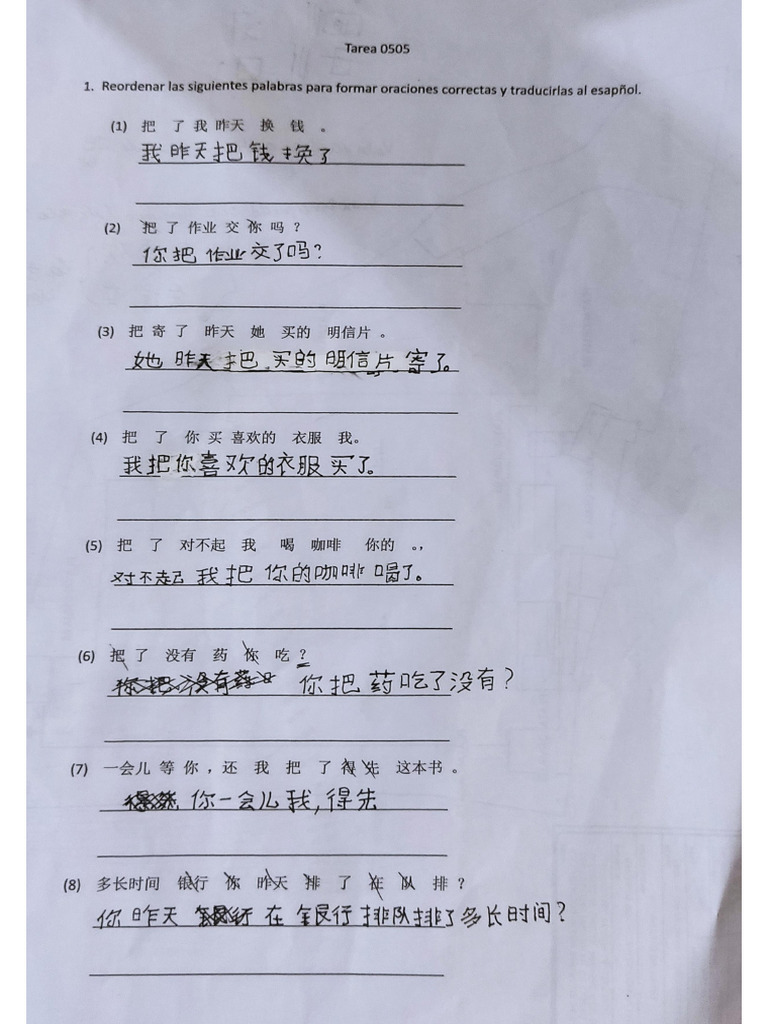 Tarea 0505
1. Reordenar las siguientes palabras para formar oraciones correctas y traducirlas al esapñol.
(1) 把 了 我 昨天 换 钱 。
我 昨天 把 钱 换了
(2) 把 了 作业 交 你 吗 ？
你把 作业 交了吗？
(3) 把 寄 了 昨天 她 买的 明信片 。
她 昨天 把 买的 明信片 寄了。
(4) 把 了 你 买 喜欢的 衣服 我。
我把你喜欢的衣服买了。
(5) 把 了 对不起 我 喝 咖啡 你的 。，
对不起 我 把 你的咖啡 喝了。
(6) 把 了 没有 药 你 吃 ？
你把 药吃了没有？
(7) 一会儿 等 你 ，还 我 把 了 得 先 这本书 。
你一会儿我，得先
(8) 多长时间 银行 你 昨天 排 了 在 队 排 ？
你 昨天 在 银行 排队排了多长时间？